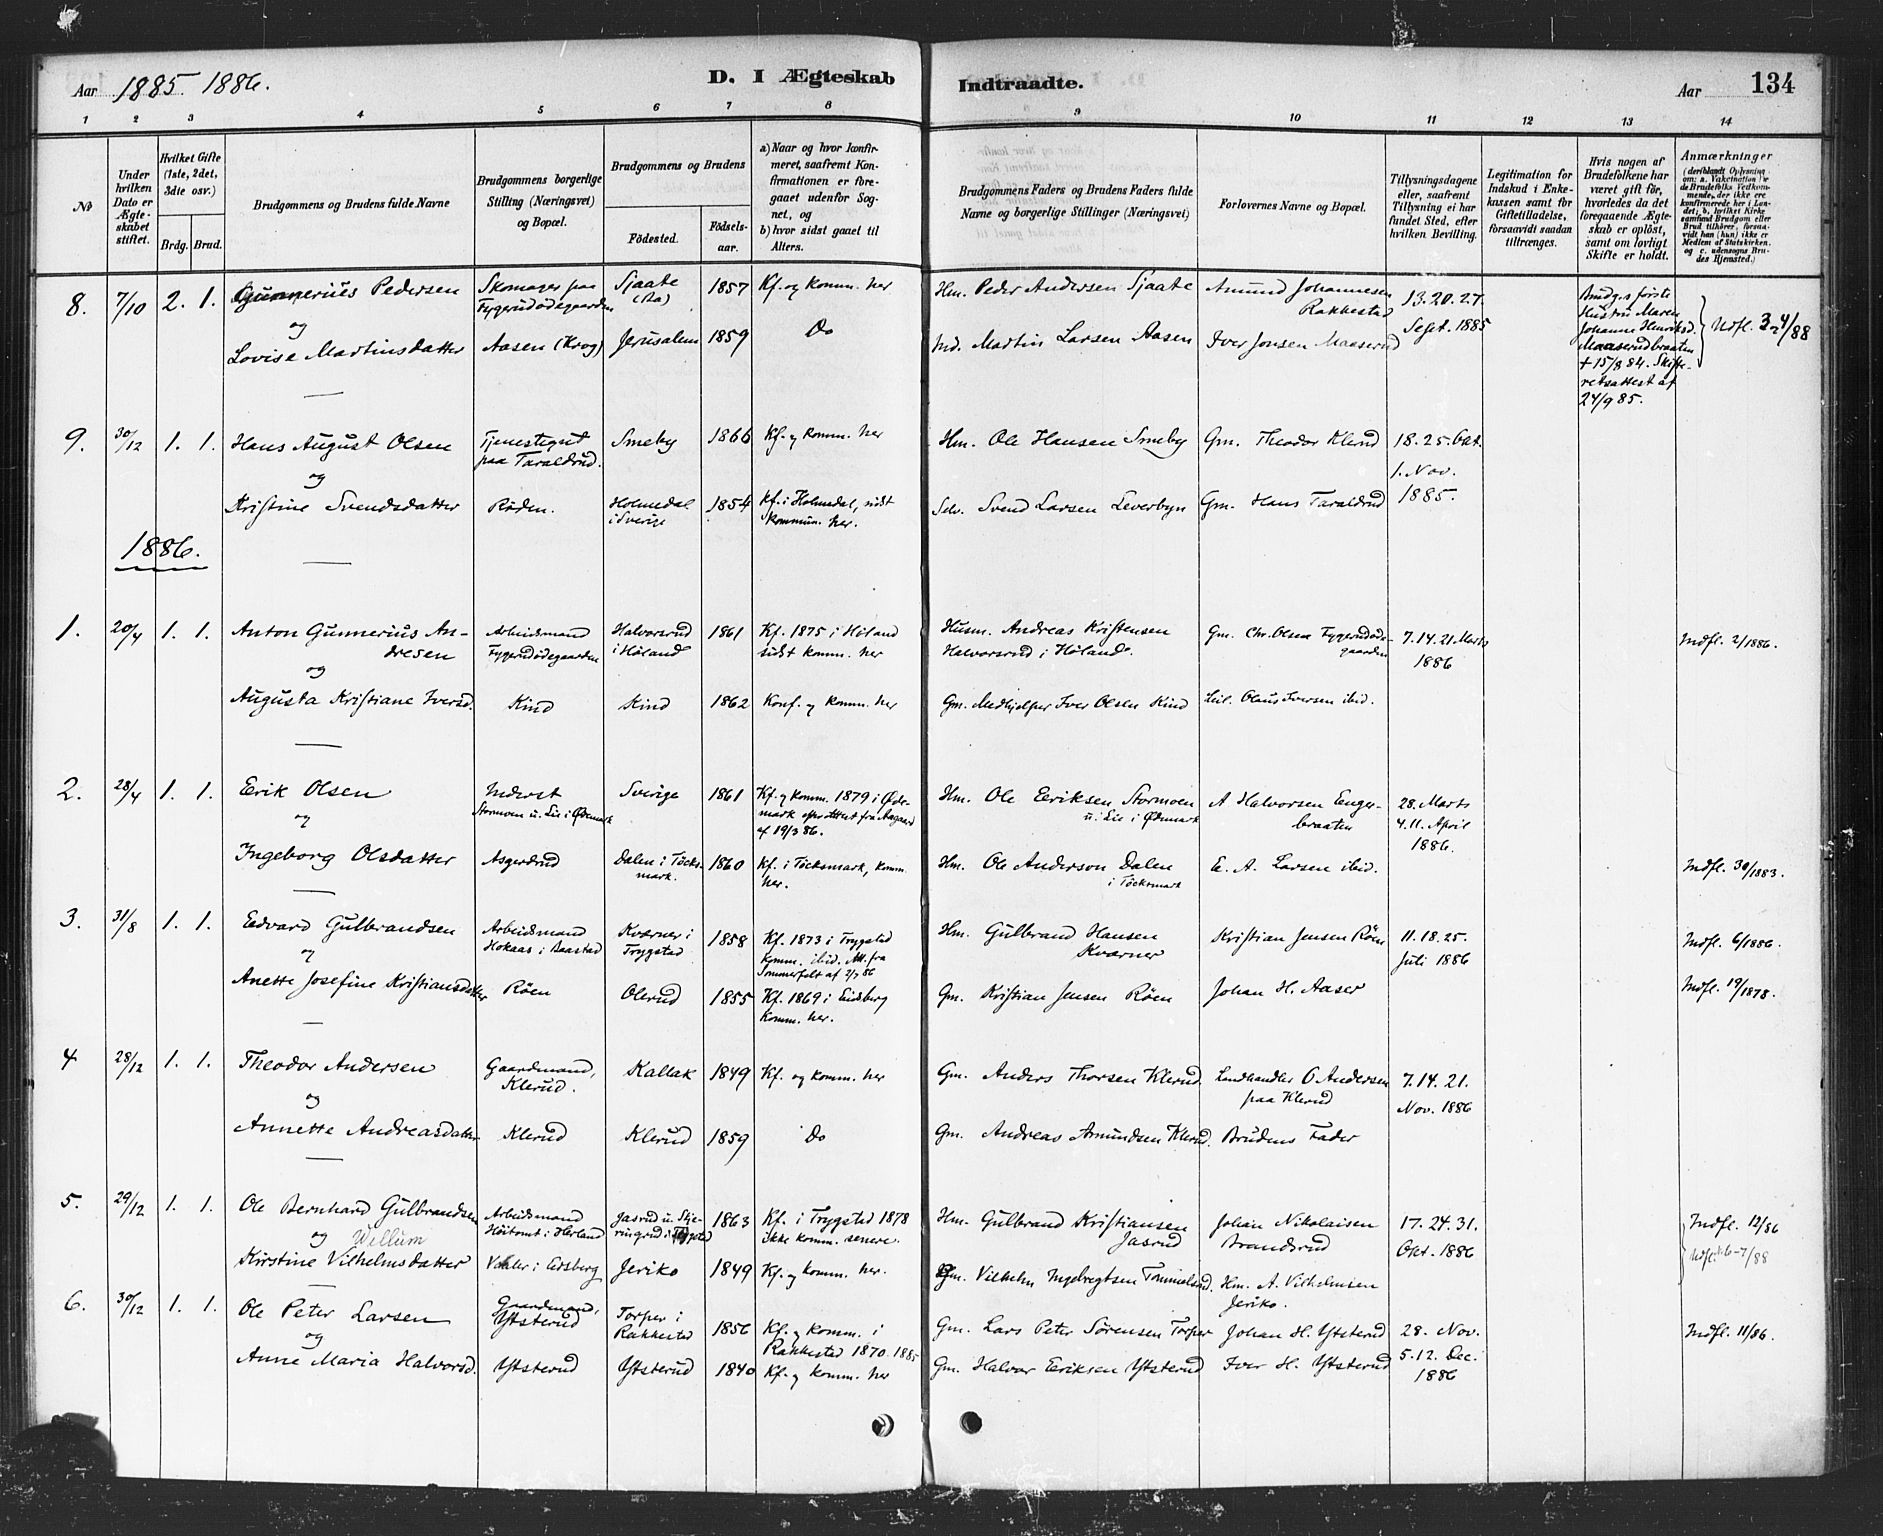 Aar 1885. 1886.
D. I Ægteskab
Indtraadte.
Aar
134
1 2 3 4 5 6 7 8 9 10 11 12 13 14
No
Under hvilken Dato er Ægteskabet stiftet.
Hvilket Gifte (1ste, 2det, 3die osv.)
Brdg. Brud.
Brudgommens og Brudens fulde Navne
Brudgommens borgerlige Stilling (Næringsvei) og Bopæl.
Brudgommens og Brudens
Fødested.
Fødselsaar.
a) Naar og hvor konfirmeret, saafremt Konfirmationen er foregaaet udenfor Sognet, og
b) hvor sidst gaaet til Alters.
Brudgommens Faders og Brudens Faders fulde Navne og borgerlige Stillinger (Næringsvei)
Forlovernes Navne og Bopæl.
Tillysningsdagene eller, saafremt Tillysning ei har fundet Sted, efter hvilken Bevilling.
Legitimation for Indskud i Enkekassen samt for Giftetilladelse, forsaavidt saadan tiltrænges.
Hvis nogen af Brudefolkene har været gift før, hvorledes da det foregaaende Ægteskab er opløst, samt om lovligt Skifte er holdt.
Anmærkninger
8. 7/10 2. 1. Gunnerius Pedersen Skomager paa Fygerudødegaarden Sjaate (Aa) 1857 Kf. og komm. her Hm. Peder Andersen Sjaate Amund Johannesen Rakkestad 13. 20. 27. Sept. 1885
Brudg.s første Hustru Maren Johanne Henriksd. Maaserudbraaten + 15/8 84. Skifteretsattest af 24/9 85.
Udfl. 3-4/88
og
Lovise Martinsdatter Aasen (Krog) Jerusalem 1859 Do Ind. Martin Larsen Aasen Iver Jonsen Maaserud
9. 30/12 1. 1. Hans August Olsen Tjenestegut paa Taraldrud. Smeby 1866 Kf. og komm. her Hm. Ole Hansen Smeby Gm. Theodor Klerud 18. 25. Okt. 1. Nov. 1885.
og
Kristine Svendsdatter Røden. Holmedal i Sverige 1854 Kf. i Holmedal, sidst kommun. her. Selv. Svend Larsen Leverbyn Gm. Hans Taraldrud
1886.
1. 20/4 1. 1. Anton Gunnerius Andresen Arbeidsmand Fygerudødegaarden Halvorsrud i Høland 1861 Kf. 1875 i Høland sidst komm. her Husm. Andreas Kristensen Halvorsrud i Høland. Gm. Chr. Olsen Fygerudødegaarden 7. 14. 21. Marts 1886 Indfl. 2/1886.
og
Augusta Kristiane Iversd. Kind Kind 1862 Konf. og komm. her Gm. Medhjelper Iver Olsen Kind Olaus Iversen ibid.
2. 28/4 1. 1. Erik Olsen Inderst Stormoen u. Lie i Ødemark Sverige 1861 Kf. og komm. 1879 i Ødemark efter attest fra Aagaard af 19/3 86. Hm. Ole Eriksen Stormoen u. Lie i Ødemark A Halvorsen Engerbraaten 28. Marts 4. 11. April 1886.
og
Ingeborg Olsdatter Asgerdrud Dalen i Töcksmark. 1860 Kf. i Töcksmark, komm. her. Hm. Ole Anderson Dalen i Töcksmark E. A. Larsen ibid. Indfl. 30/1883.
3. 31/8 1. 1. Edvard Gulbrandsen Arbeidsmand Hokaas i Baastad Kværner i Trygstad 1858 Kf. 1873 i Trygstad Komm. ibid. Att. fra Sommerfelt af 2/7 86 Hm. Gulbrand Hansen Kværner Kristian Jensen Røen 11. 18. 25. Juli 1886 Indfl. 6/1886.
og
Anette Josefine Kristiansdatter Røen Olerud 1855 Kf. 1869 i Eidsberg Komm. her. Gm. Kristian Jensen Røen Johan H. Aaser Indfl. 19/1878.
4 28/12 1. 1. Theodor Andersen Gaardmand, Klerud. Kallak 1849 Kf. og komm. her Gm. Anders Thorsen Klerud. Landhandler O Andersen paa Klerud 7. 14. 21. Nov. 1886
og
Annette Andreasdatter Klerud Klerud 1859 Do Gm. Andreas Amundsen Klerud. Brudens Fader
5. 29/12 1. 1. Ole Bernhard Gulbrandsen Arbeidsmand Høitomt i Herland Jasrud u. Skjeringrud i Trygstad 1863 Kf. i Trygstad 1878 ikke komm. senere. Hm. Gulbrand Kristiansen Jasrud Johan Nikolaisen Brandsrud 17. 24. 31. Okt. 1886 Indfl. 12/86
og Willum
Kirstine Vilhelmsdatter Vahler i Eidsberg Jeriko 1849 Kf. og komm. her. Gm. Vilhelm Ingebregtsen Tommelsrud. Hm. A. Vilhelmsen Jeriko. Udfl. 16-7/88
6. 30/12 1. 1. Ole Peter Larsen Gaardmand, Ytsterud Torper i Rakkestad 1856 Kf. og komm. i Rakkestad 1870. 1885 Gm. Lars Peter Sørensen Torper Johan H. Ytsterud 28. Nov. 5. 12. Dec. 1886 Indfl. 11/86.
og
Anne Maria Halvorsd. Ytsterud Ytsterud 1840 Kf. og komm. her Gm. Halvor Eriksen Ytsterud Iver H. Ytsterud